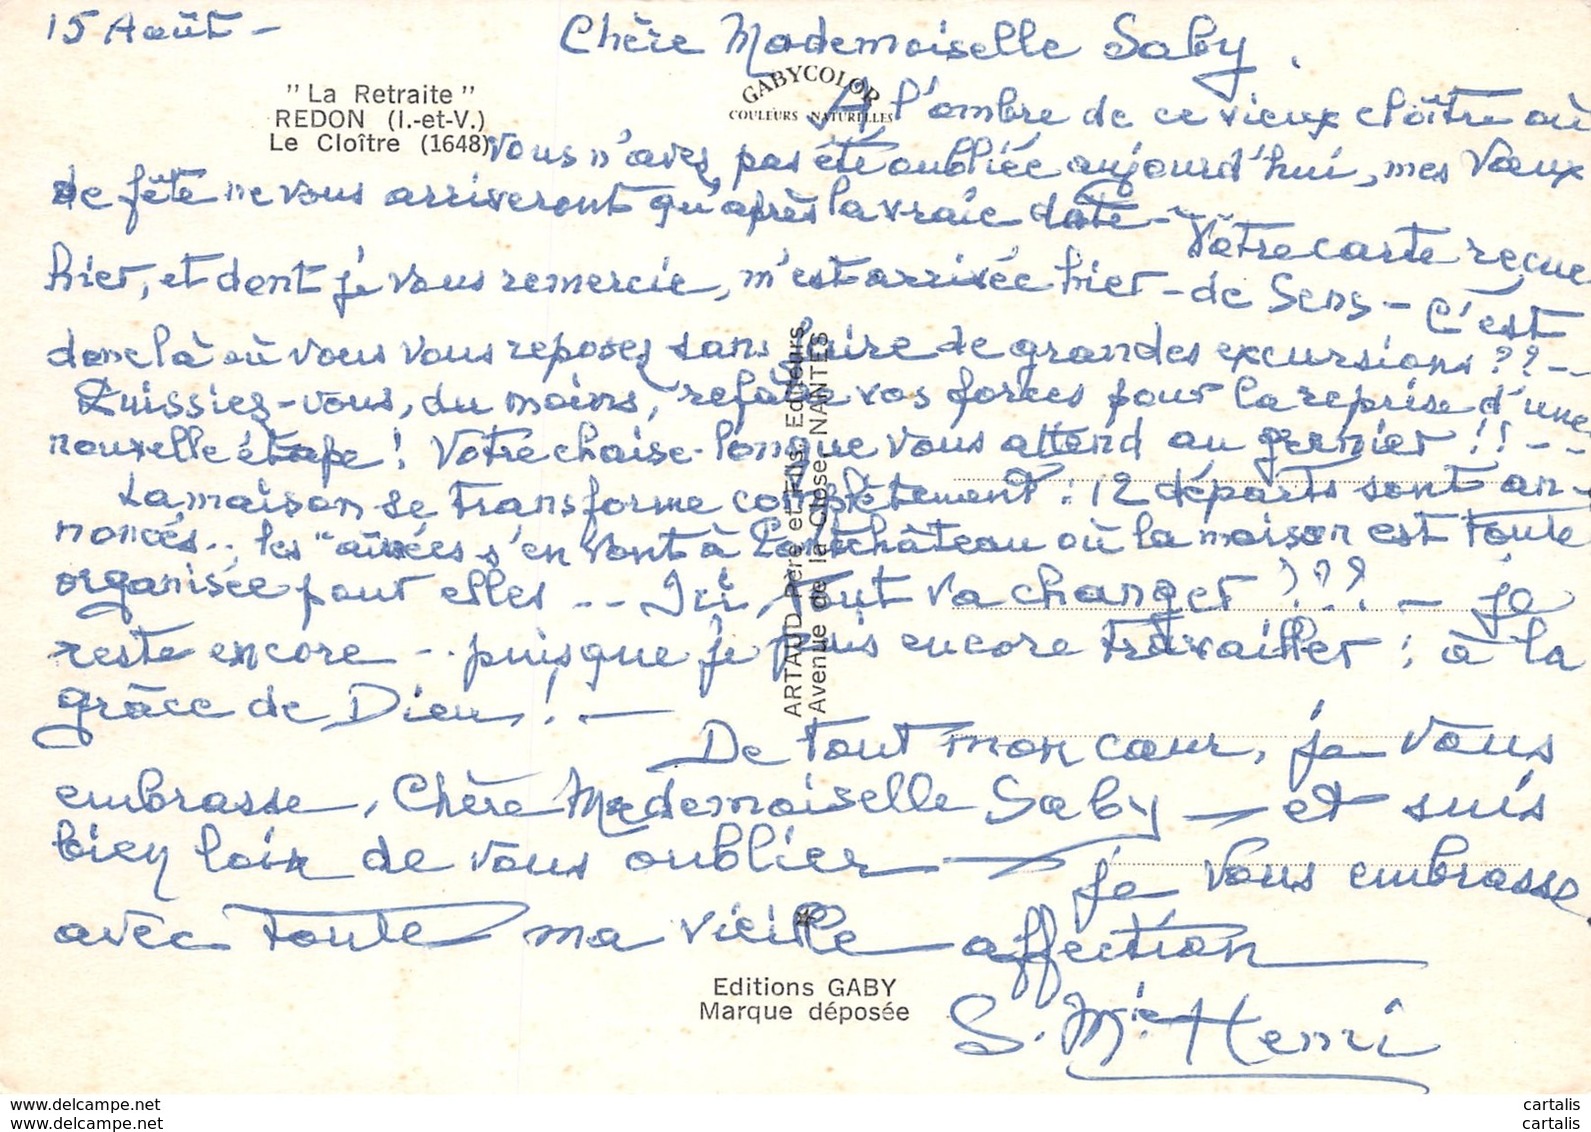 15 Août -
Chère Mademoiselle Saby.
" La Retraite "
REDON (I.-et-V.)
Le Cloître (1648)
GABYCOLOR
COULEURS NATURELLES
A l'ombre de ce vieux cloître où
vous n'avez pas été oubliée aujourd'hui, mes vœux
de fête ne vous arriveront qu'après la vraie date - Votre carte reçue
hier, et dont je vous remercie, m'est arrivée hier - de Sens - C'est
donc là où vous vous reposez sans faire de grandes excursions ?? --
Puissiez-vous, du moins, refaire vos forces pour la reprise d'une
nouvelle étape ! Votre chaise-longue vous attend au grenier !! --
La maison se transforme complètement : 12 départs sont an-
noncés.. les "aînées s'en vont à Pontchâteau où la maison est toute
organisée pour elles -- Ici, tout va changer ??? - je
reste encore -.. puisque je puis encore travailler ; à la
grâce de Dieu ! -
De tout mon cœur, je vous
embrasse, Chère Mademoiselle Saby - et suis
bien loin de vous oublier - je vous embrasse
avec toute ma vieille affection
S. Mie Henri
ARTAUD Père et Fils, Editeurs
Avenue de la Close - NANTES
Editions GABY
Marque déposée
www.delcampe.net
www.delcampe.net
cartalis
cartalis